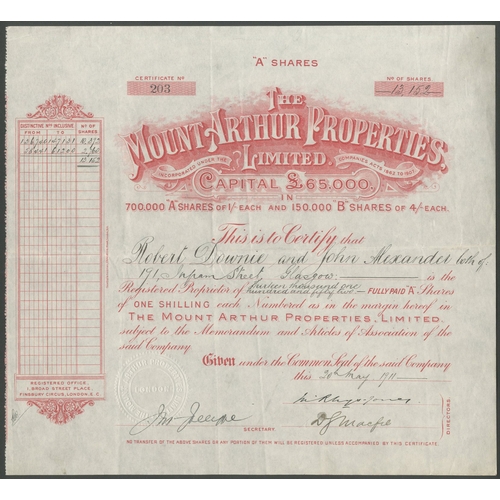 "A" SHARES
CERTIFICATE No
203
No OF SHARES.
13,152
DISTINCTIVE Nos INCLUSIVE.
No OF SHARES.
FROM TO
13,152
THE
MOUNT ARTHUR PROPERTIES,
LIMITED.
INCORPORATED UNDER THE COMPANIES ACTS 1862 TO 1907.
CAPITAL £65,000.
IN
700,000 "A" SHARES OF 1/- EACH AND 150,000 "B" SHARES OF 4/- EACH.
This is to Certify that
Robert Downie and John Alexander both of
191, Street Glasgow is the
Registered Proprietor of thirteen thousand one
hundred and fifty two FULLY PAID "A" Shares
of ONE SHILLING each Numbered as in the margin hereof in
THE MOUNT ARTHUR PROPERTIES, LIMITED.
subject to the Memorandum and Articles of Association of the
said Company
Given under the Common Seal of the said Company
this 30th May 1911
REGISTERED OFFICE,
1, BROAD STREET PLACE,
FINSBURY CIRCUS, LONDON, E.C.
DIRECTORS.
SECRETARY
NO TRANSFER OF THE ABOVE SHARES OR ANY PORTION OF THEM WILL BE REGISTERED UNLESS ACCOMPANIED BY THIS CERTIFICATE.